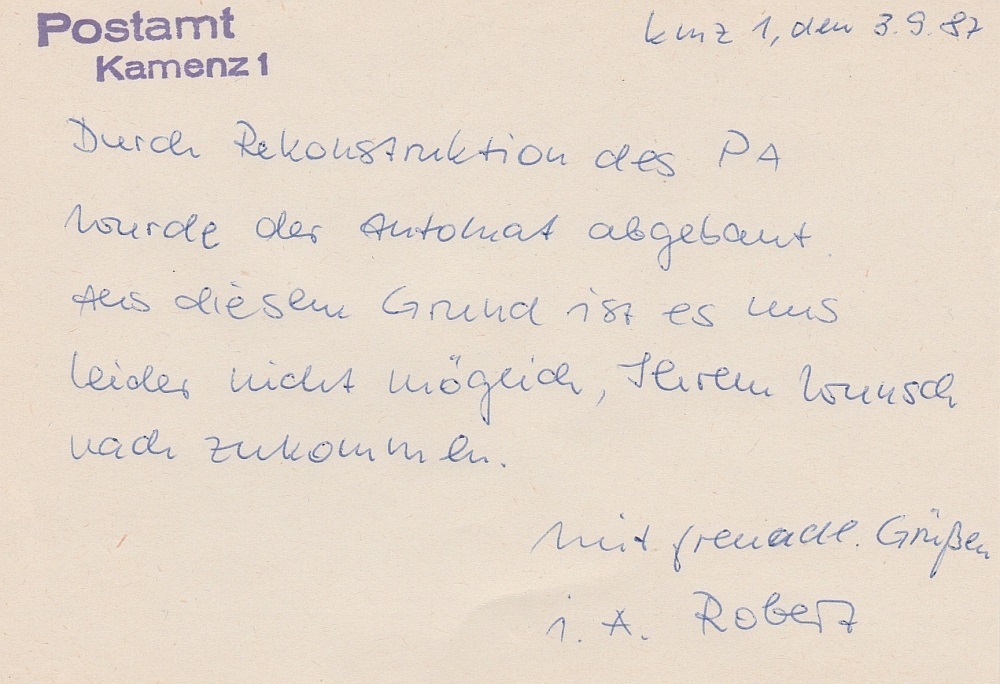 Postamt
Kamenz 1
kmz 1, den 3.9.87
Durch Rekonstruktion des PA
wurde der Automat abgebaut.
Aus diesem Grund ist es uns
leider nicht möglich, Ihrem Wunsch
nach zukommen.
Mit freundl. Grüßen
i. A. Robert